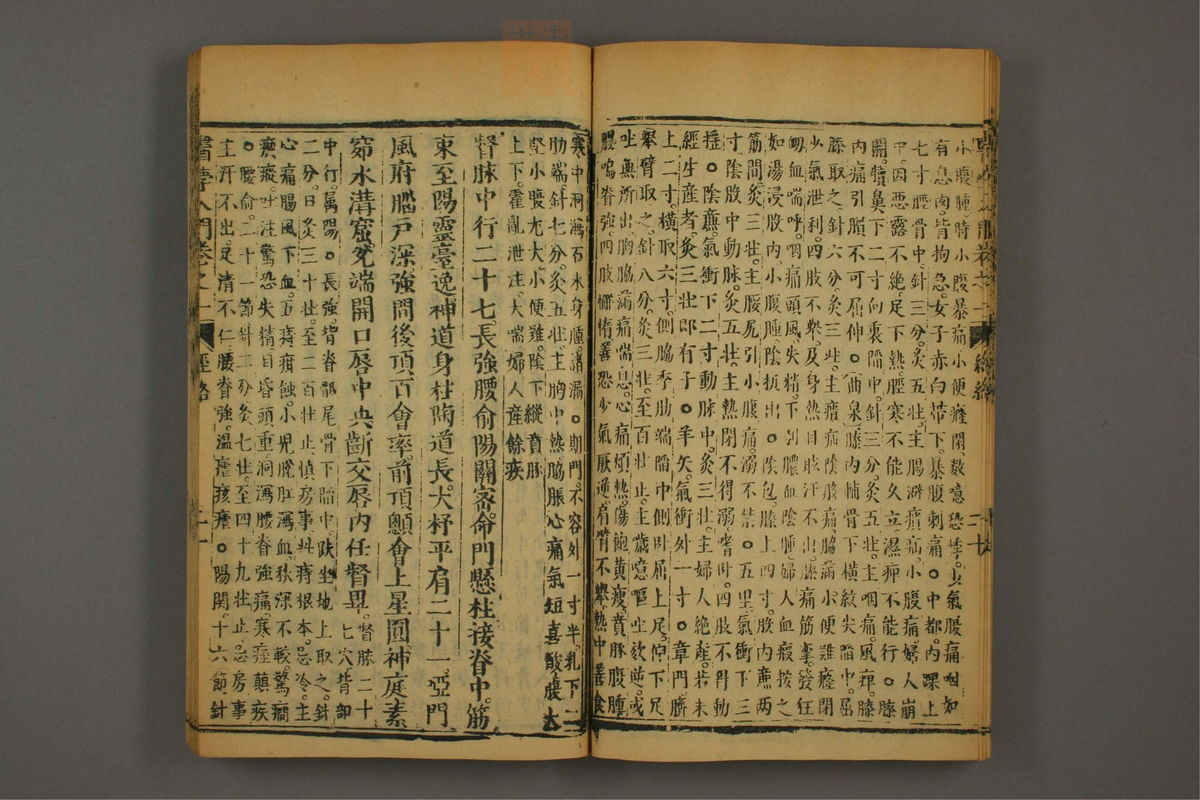 小腹腫時小腹暴痛小便癃閉數噫恐悸少氣腹痛咽如
有息肉背拘急女子赤白帶下暴腹刺痛○中都內踝上
七寸脛骨中針三分灸五壯主腸澼㿉疝小腹痛婦人崩
中因惡露不絕足下熱脛寒不能久立濕痹不能行○膝
關犢鼻下二寸向裏陷中針三分灸五壯主咽痛風痹膝
內痛引臏不可屈伸○曲泉膝內輔骨下橫紋尖陷中屈
膝取之針六分灸三壯主㿉疝陰股痛脇滿小便難癃閉
少氣泄利四肢不舉及身熱目眩汗不出膝痛筋攣發狂
衂血喘呼咽痛頭風失精下利膿血陰腫婦人血瘕按之
如湯浸股內小腹腫陰挺出○陰包膝上四寸股內廉兩
筋間灸三壯主腰尻引小腹痛溺不禁○五里氣衝下三
寸陰股中動脉灸五壯主熱閉不得溺嗜卧四肢不得動
揺○陰廉氣衝下二寸動脉中灸三壯主婦人絕產若未
經生產者灸三壯即有子○羊矢氣衝外一寸○章門臍
上二寸橫取六寸側脇季肋端陷中側卧屈上足伸下足
舉臂取之針八分灸三壯至百壯止主歲噫嘔吐欬逆或
吐無所出胸脇滿痛喘息心痛煩熱傷飽黃瘦賁豚腹腫
腰脊強四肢懈惰善恐少氣厥逆肩臂不舉熱中善食
寒中洞瀉石水身腫諸漏○期門不容外一寸半乳下二
肋端針七分灸五壯主胸中熱脇脹心痛氣短喜酸腹大
堅小腹尤大小便難陰下縱賁豚
上下霍亂泄注大喘婦人產餘疾
督脉中行二十七長強腰俞陽關密命門懸柱接脊中筋
束至陽靈臺逸神道身柱陶道長大杼平肩二十一瘂門
風府腦戶深強間後頂百會率前頂顖會上星圓神庭素
窌水溝窟兌端開口唇中央齗交唇內任督畢督脉二十七穴背部
中行屬陽○長強背脊骶尾骨下陷中趺坐地上取之針
二分日灸三十壯至二百壯止慎房事此痔根本忌冷主
心痛腸風下血五痔疳蝕小兒脫肛瀉血秋深不較驚癇
瘈瘲吐注驚恐失精目昏頭重洞瀉腰脊強痛寒瘧癲疾
○腰俞二十一節針二分灸七壯至四十九壯止忌房事
主汗不出足清不仁腰脊強溫瘧痎瘧○陽關十六節針
醫學入門卷之一
經絡
二十一
二十